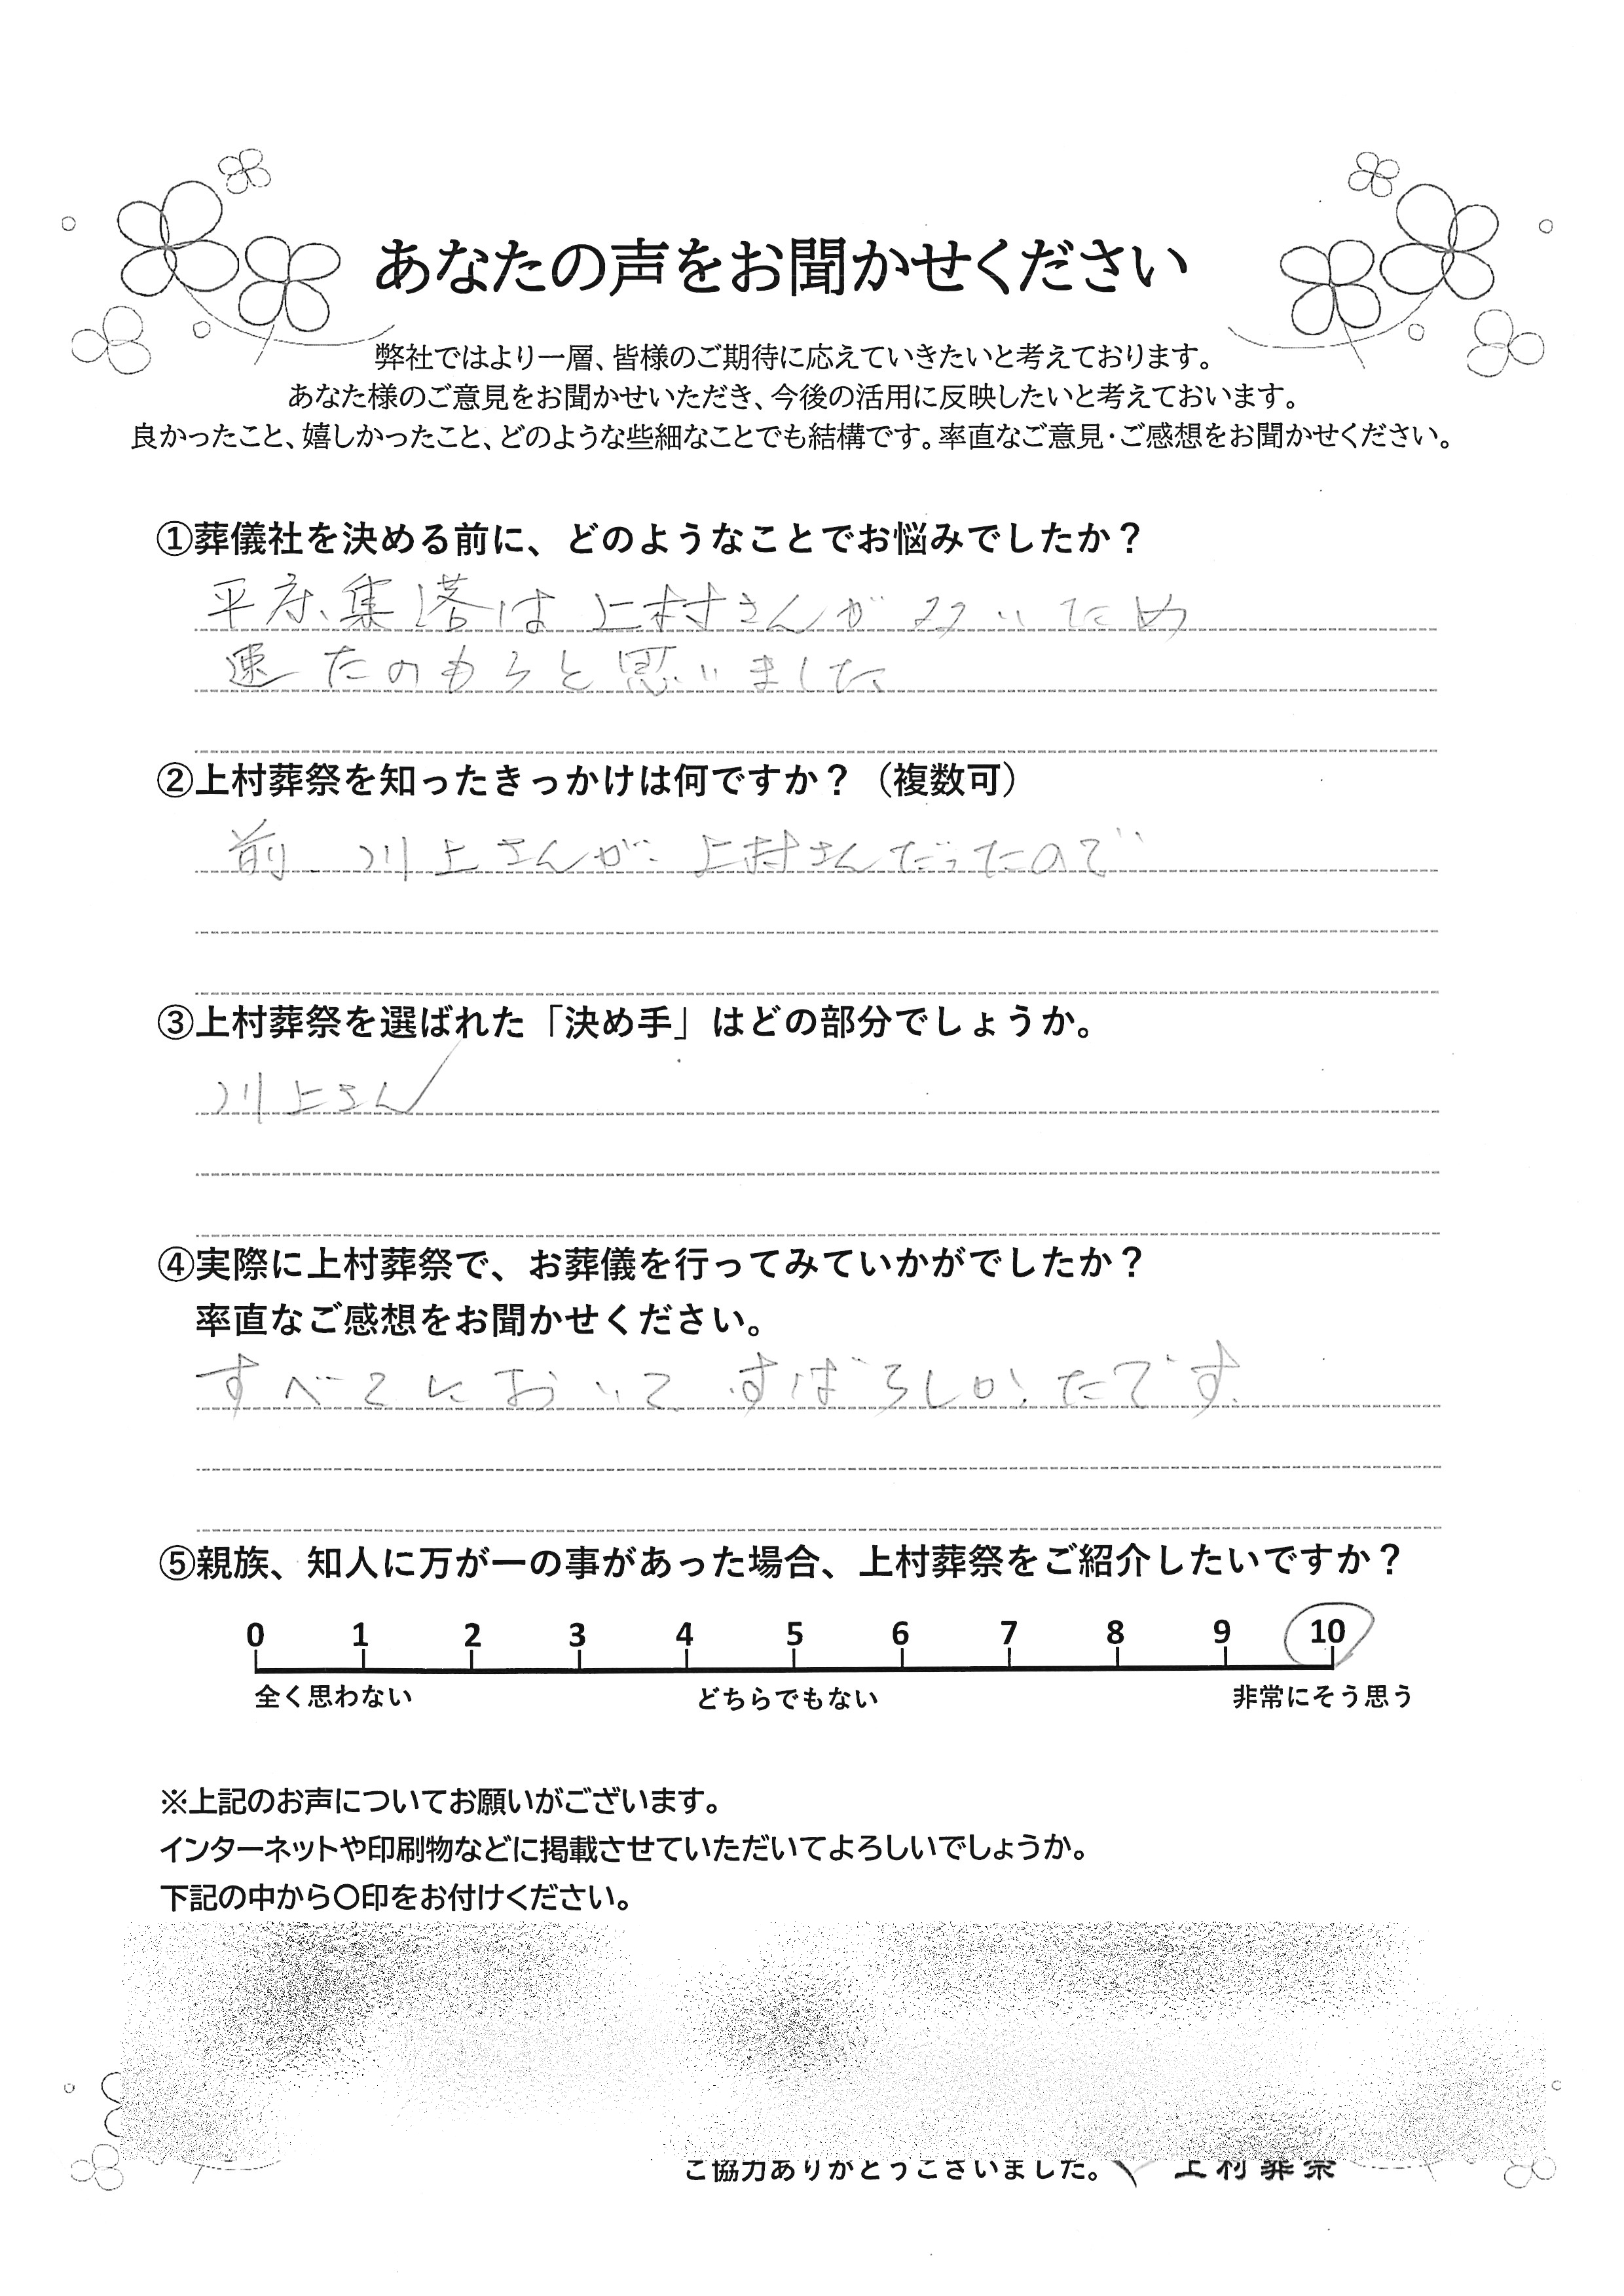 あなたの声をお聞かせください
弊社ではより一層、皆様のご期待に応えていきたいと考えております。
あなた様のご意見をお聞かせいただき、今後の活用に反映したいと考えておいます。
良かったこと、嬉しかったこと、どのような些細なことでも結構です。率直なご意見・ご感想をお聞かせください。
①葬儀社を決める前に、どのようなことでお悩みでしたか？
は上村さんが
と思いました
②上村葬祭を知ったきっかけは何ですか？（複数可）
前 川上さんが 上村さんだったので
③上村葬祭を選ばれた「決め手」はどの部分でしょうか。
川上さん
④実際に上村葬祭で、お葬儀を行ってみていかがでしたか？
率直なご感想をお聞かせください。
すべてにおいて すばらしかったです。
⑤親族、知人に万が一の事があった場合、上村葬祭をご紹介したいですか？
0 1 2 3 4 5 6 7 8 9 10
全く思わない どちらでもない 非常にそう思う
※上記のお声についてお願いがございます。
インターネットや印刷物などに掲載させていただいてよろしいでしょうか。
下記の中から〇印をお付けください。
ご協力ありがとうございました。 上村葬祭